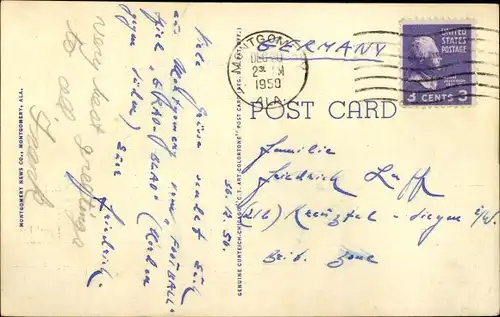 GERMANY
MONTGOMERY
DEC 30
2 PM
1950
ALA.
UNITED STATES POSTAGE
3 CENTS 3
POST CARD
Familie
Friedrich Luff
(21b) Kreuztal - Siegen i/W.
brit. Zone
Viele Grüsse sendet Euch
aus Montgomery vom "FOOTBALL-
Spiel "GRAY-BLAU" (Norden
gegen Süden) Euer
Friedrich.
30.12.50.
very best greetings
to all
Frank
MONTGOMERY NEWS CO., MONTGOMERY, ALA.
GENUINE CURTEICH-CHICAGO "C.T. ART-COLORTONE" POST CARD (REG. U.S. PAT. OFF.)